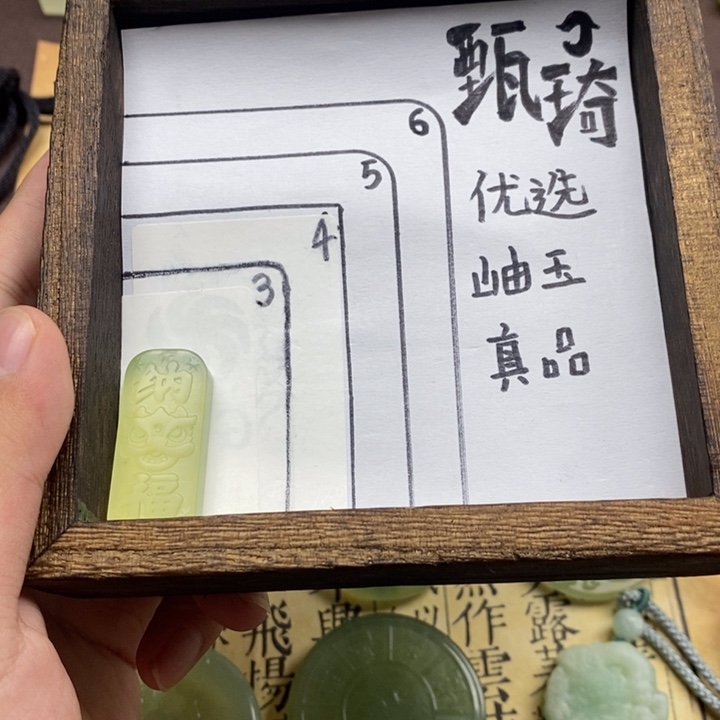 甄琦
优选
岫玉
真品
6
5
4
3
纳
福
飛揚
作雲
露